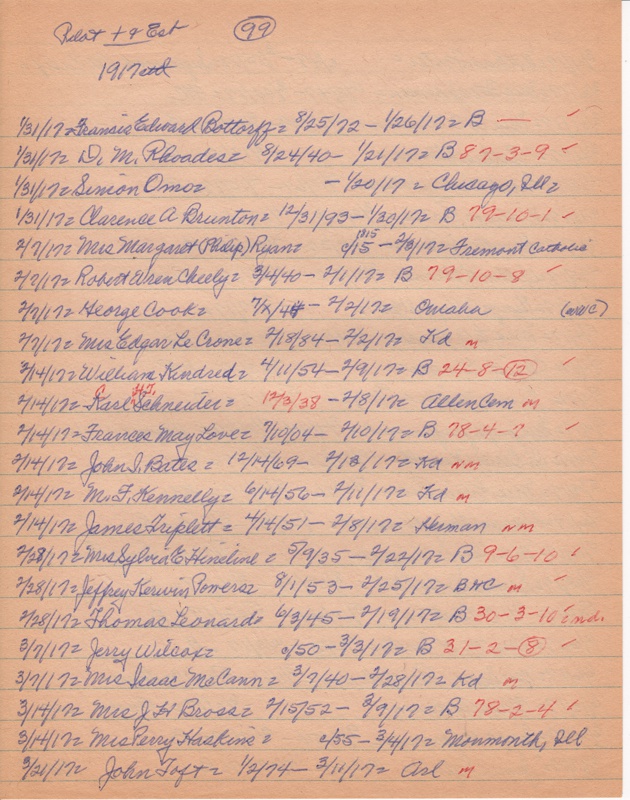 Pilot + & Est (99)
1917
1/31/17= Francis Edward Bottorff= 8/25/72 – 1/26/17= B — ✓
1/31/17= D. M. Rhoades= 8/24/40 – 1/21/17= B 87-3-9 ✓
1/31/17= Simon Omo= – 1/20/17= Chicago, Ill=
1/31/17= Clarence A Brunton= 12/31/93 – 1/20/17= B 79-10-1 ✓
2/7/17= Mrs Margaret (Philip) Ryan= c/15 1915 – 2/3/17= Fremont Catholic
2/7/17= Robert Wren Cheely= 3/4/40 – 2/1/17= B 79-10-8 ✓
2/7/17= George Cook= – 2/2/17= Omaha (WWC)
2/7/17= Mrs Edgar Le Crone= 2/18/84 – 2/2/17= Kd m
2/14/17= William Kindred= 4/11/54 – 2/9/17= B 24-8-(12) ✓
2/14/17= Karl C H.F. Schneider= 12/3/38 – 2/8/17= Allen Cem m
2/14/17= Frances May Love= 7/10/04 – 2/10/17= B 78-4-7 ✓
2/14/17= John I. Bates= 12/14/69 – 2/13/17= Kd nm
2/14/17= M. F. Kennelly= 6/14/56 – 2/11/17= Kd m
2/14/17= James Triplett= 4/14/51 – 2/8/17= Herman nm
2/28/17= Mrs Sylvia E Hineline= 5/9/35 – 2/22/17= B 9-6-10 ✓
2/28/17= Jeffrey Kerwin Powers= 8/1/53 – 2/25/17= BHC m ✓
2/28/17= Thomas Leonard= 6/3/45 – 2/19/17= B 30-3-10 ind.
3/7/17= Jerry Wilcox= c/50 – 3/3/17= B 31-2-(8) ✓
3/7/17= Mrs Isaac McCann= 3/7/40 – 2/28/17= Kd m
3/14/17= Mrs J H Bross= 2/15/52 – 3/9/17= B 78-2-4 ✓
3/14/17= Mrs Perry Haskins= c/55 – 3/4/17= Monmonth, Ill
3/21/17= John Toft= 1/2/74 – 3/11/17= Arl m